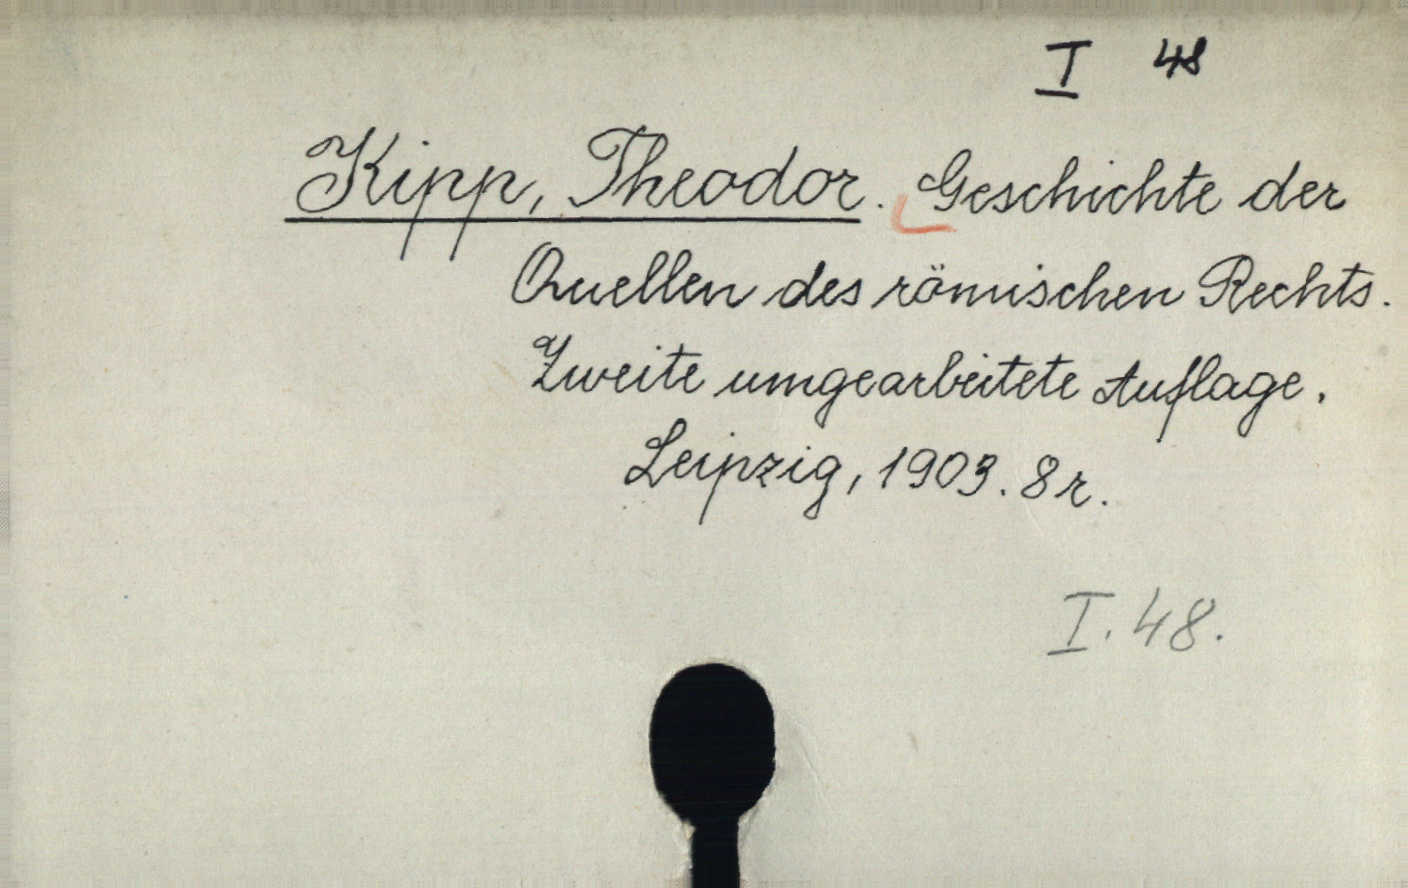 I 48
Kipp, Theodor. Geschichte der
Quellen des römischen Rechts.
Zweite umgearbeitete Auflage.
Leipzig, 1903. 8r.
I. 48.